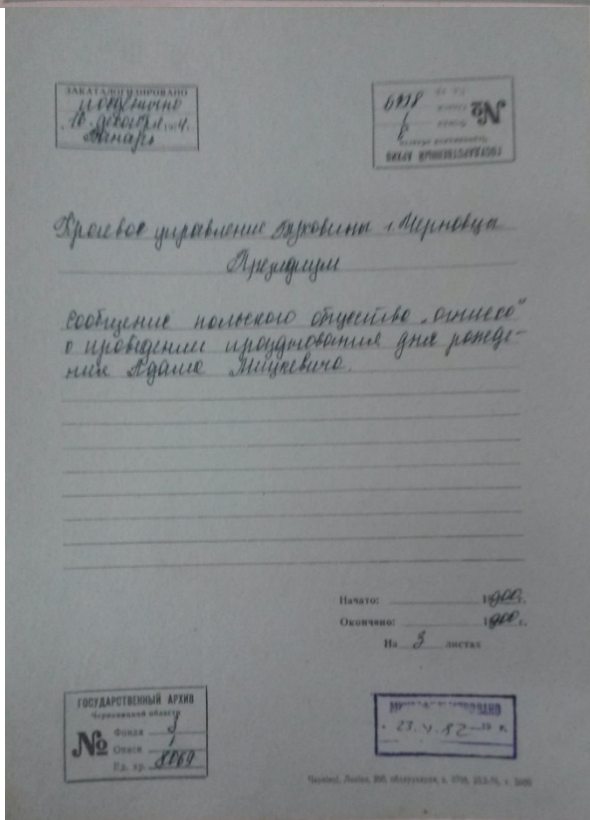 ЗАКАТАЛОГИЗИРОВАНО
10 декабря
ГОСУДАРСТВЕННЫЙ АРХИВ
№
Краевое управление Буковины г. Черновцы
Президиум
Сообщение польского общества „Огниско"
о проведении празднования дня рожде-
ния Адама Мицкевича.
Начато: 1900 г.
Окончено: 1900 г.
На 3 листах
ГОСУДАРСТВЕННЫЙ АРХИВ
Черновицкой области
№
Фонд 3
Опись 1
Ед. хр. 8069
23.V.82